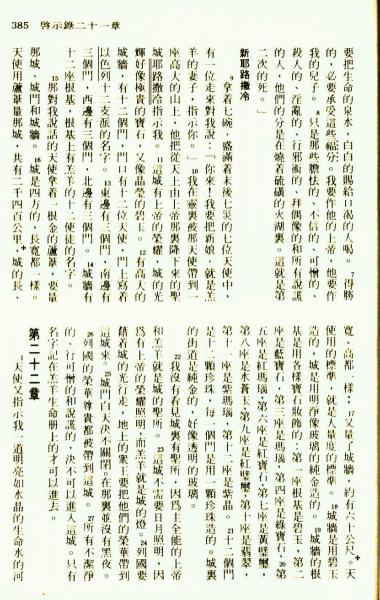 385 啓示錄二十一章
要把生命的泉水,白白的賜給口渴的人喝。7得勝
的,必要承受這些福分。我要作他的上帝,他要作
我的兒子。8只是那些膽怯的、不信的、可憎的、
殺人的、淫亂的、行邪術的、拜偶像的和所有說謊
的人,他們的分是在燒着硫磺的火湖裏。這就是第
二次的死。」
新耶路撒冷
9拿着七碗、盛滿着末後七災的七位天使中,
有一位走來對我說:「你來!我要把新娘,就是羔
羊的妻子,指示你。」10我在靈裏被那天使帶到一
座高大的山上,他把從天上由上帝那裏降下來的聖
城耶路撒冷指示我。11這城有上帝的榮耀,城的光
輝好像極貴的寶石,又像晶瑩的碧玉。12有高大的
城牆,有十二個門,門口有十二位天使,門上寫着
以色列十二支派的名字。13東邊有三個門,南邊有
三個門,西邊有三個門,北邊有三個門。14城牆有
十二座根基,根基上有羔羊的十二使徒的名字。
15那對我說話的天使拿着一根金的蘆葦,要量
那城、城門和城牆。16城是四方的,長寬都一樣。
天使用蘆葦量那城,共有二千四百公里+,城的長、
寬、高都一樣;17又量了城牆,約有六十公尺+。天
使用的標準,就是人量度的標準。18城牆是用碧玉
造的,城是用明淨像玻璃的純金造的。19城牆的根
基是用各樣寶石妝飾的:第一座根基是碧玉,第二
座是藍寶石,第三座是瑪瑙,第四座是綠寶石,20第
五座是紅瑪瑙,第六座是紅寶石,第七座是黃璧璽,
第八座是水蒼玉,第九座是紅璧璽,第十座是翡翠,
第十一座是紫瑪瑙,第十二座是紫晶。21十二個門
是十二顆珍珠,每一個門是用一顆珍珠造的。城裏
的街道是純金的,好像透明的玻璃。
22我沒有看見城裏有聖所,因爲主全能的上帝
和羔羊就是城的聖所。23這城不需要日月照明,因
爲有上帝的榮耀照明,而羔羊就是城的燈。24列國要
藉着城的光行走,地上的衆王要把他們的榮華帶到
這城來。25城門白天決不關閉。在那裏並沒有黑夜。
26列國的榮華尊貴都被帶到這城。27所有不潔淨
的、行可憎的和說謊的,決不可以進入這城。只有
名字記在羔羊生命册上的才可以進去。
第二十二章
1天使又指示我一道明亮如水晶的生命水的河